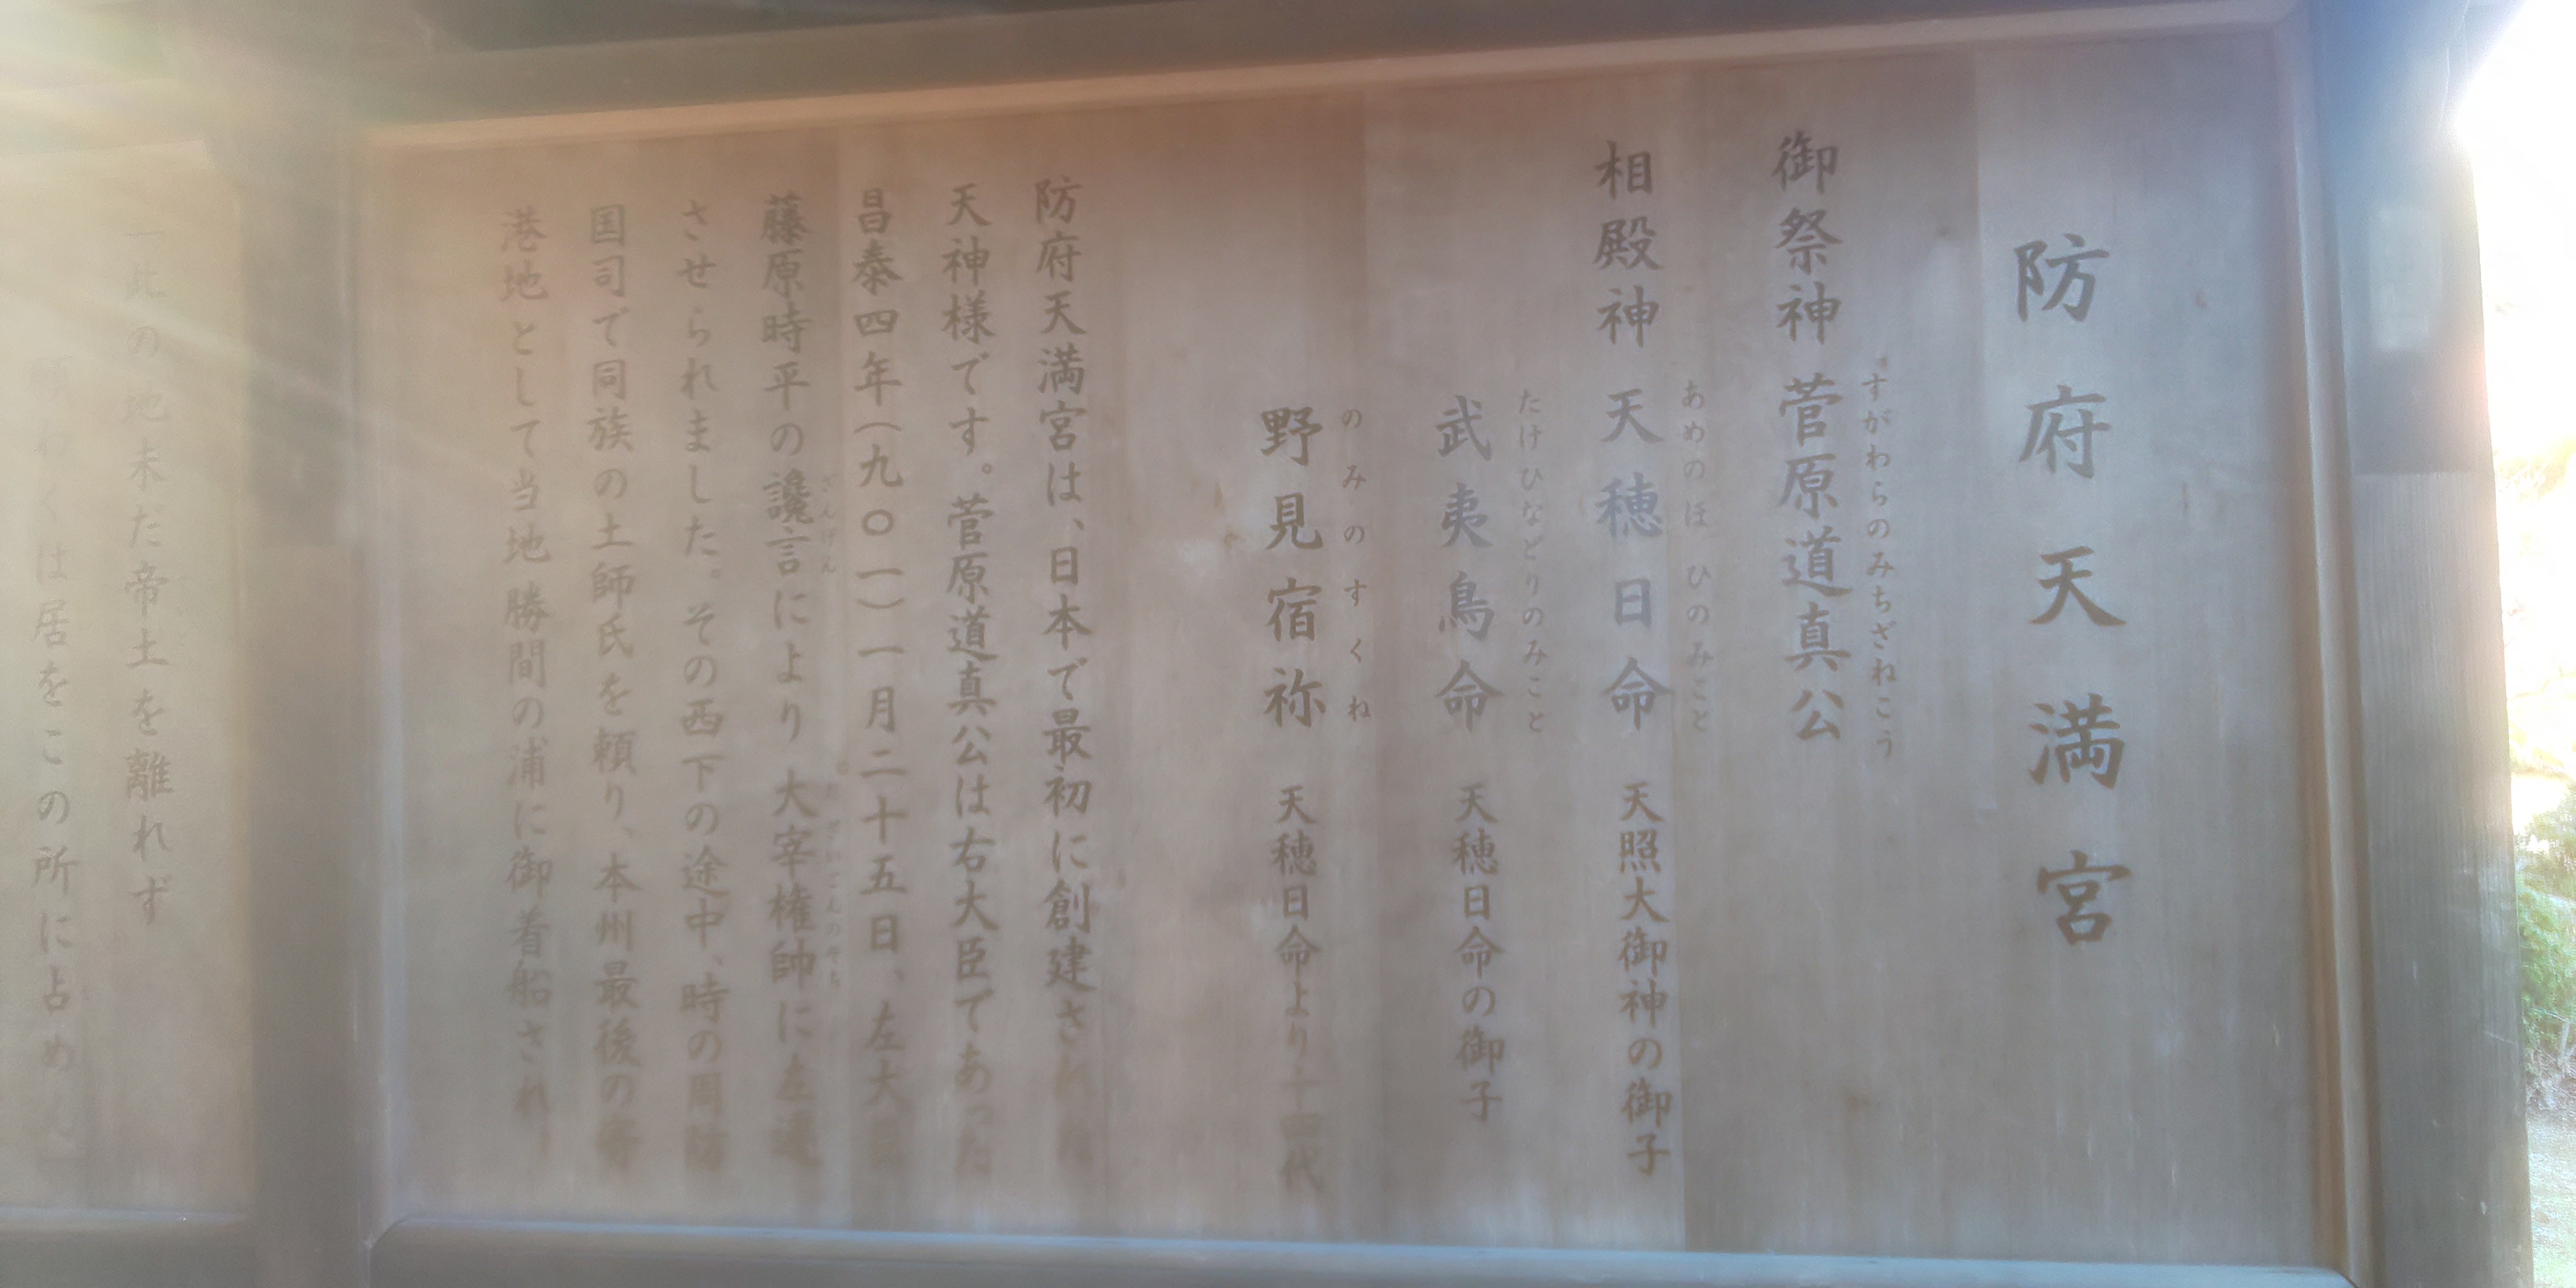 防府天満宮
御祭神 菅原道真公
すがわらのみちざねこう
相殿神 天穂日命 天照大御神の御子
あめのほ ひのみこと
武夷鳥命 天穂日命の御子
たけひなどりのみこと
野見宿祢 天穂日命より十四代
のみのすくね
防府天満宮は、日本で最初に創建された
天神様です。菅原道真公は右大臣であった
昌泰四年(九〇一)一月二十五日、左大臣
藤原時平の讒言により大宰権帥に左遷
ざんげん だざいごんのそち
させられました。その西下の途中、時の周防
国司で同族の土師氏を頼り、本州最後の寄
港地として当地勝間の浦に御着船され、
「此の地未だ帝土を離れず
願わくは居をこの所に占めん」